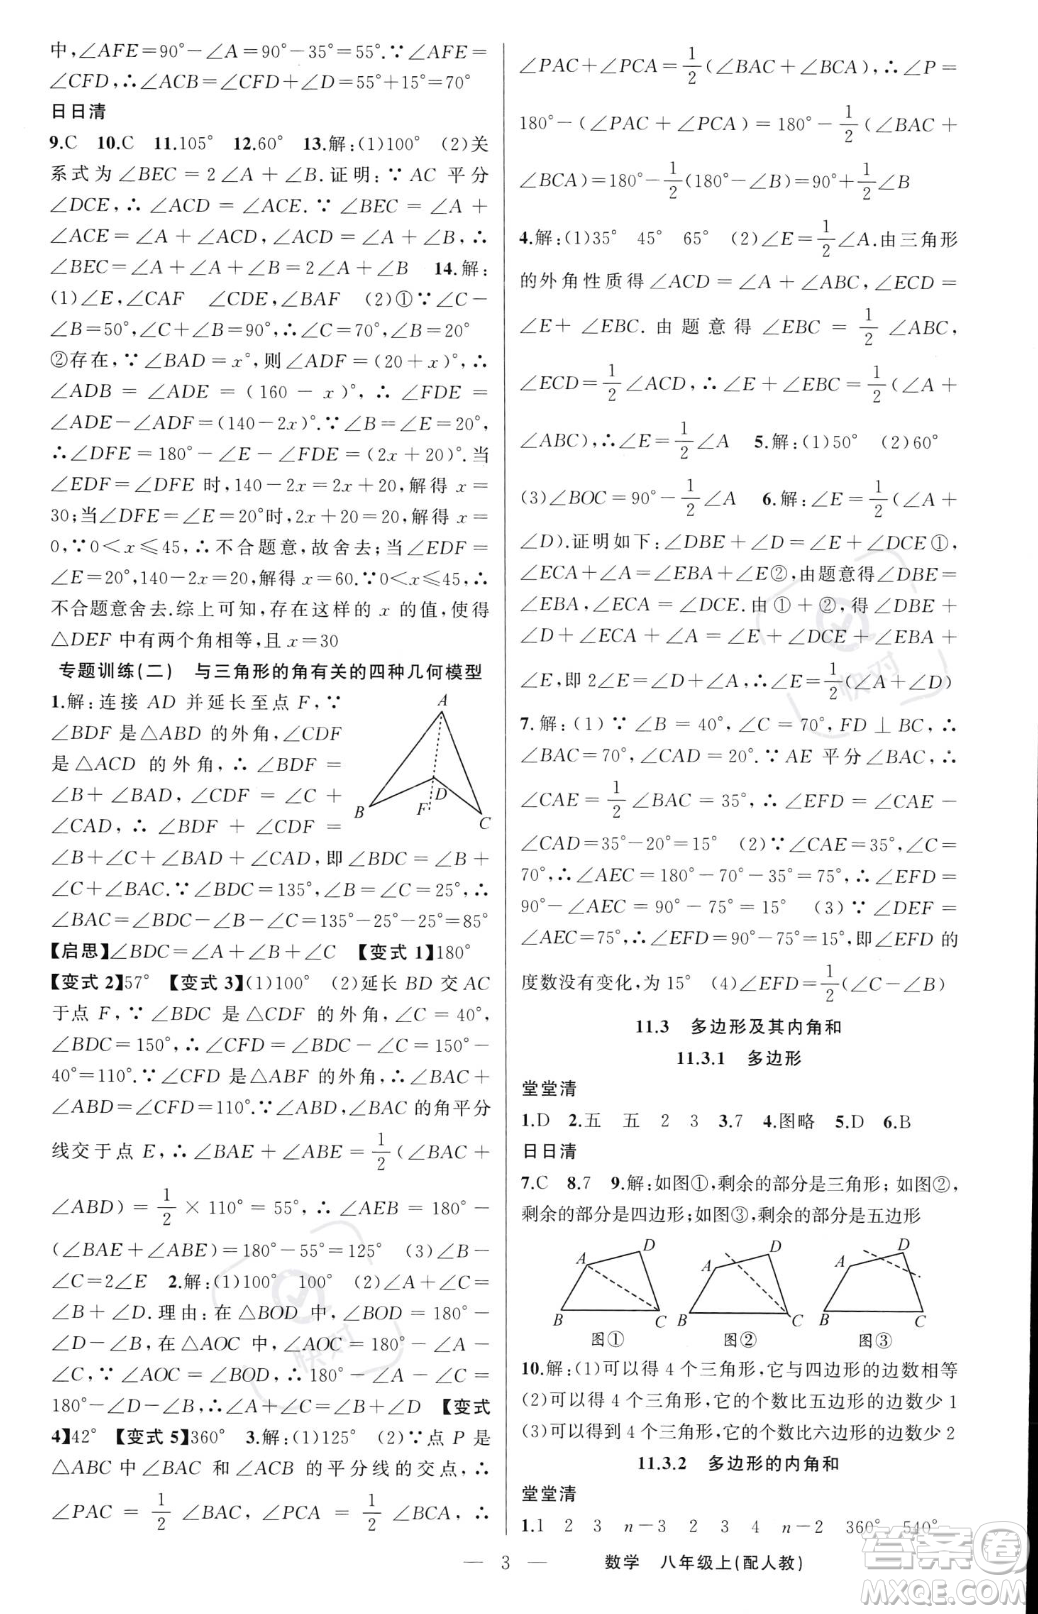 中,∠AFE=90°-∠A=90°-35°=55°.∵∠AFE=
∠CFD,∴∠ACB=∠CFD+∠D=55°+15°=70°
日日清
9.C 10.C 11.105° 12.60° 13.解:(1)100° (2)关
系式为∠BEC=2∠A+∠B.证明:∵AC 平分
∠DCE,∴∠ACD=∠ACE.∵∠BEC=∠A+
∠ACE=∠A+∠ACD,∠ACD=∠A+∠B,∴
∠BEC=∠A+∠A+∠B=2∠A+∠B 14.解:
(1)∠E,∠CAF ∠CDE,∠BAF (2)①∵∠C-
∠B=50°,∠C+∠B=90°,∴∠C=70°,∠B=20°
②存在,∵∠BAD=x°,则∠ADF=(20+x)°,∴
∠ADB=∠ADE=(160-x)°,∴∠FDE=
∠ADE-∠ADF=(140-2x)°.∵∠B=∠E=20°,
∴∠DFE=180°-∠E-∠FDE=(2x+20)°.当
∠EDF=∠DFE 时,140-2x=2x+20,解得 x=
30;当∠DFE=∠E=20°时,2x+20=20,解得 x=
0,∵0<x≤45,∴不合题意,故舍去;当∠EDF=
∠E=20°,140-2x=20,解得 x=60.∵0<x≤45,∴
不合题意舍去.综上可知,存在这样的 x 的值,使得
△DEF 中有两个角相等,且 x=30
专题训练(二) 与三角形的角有关的四种几何模型
1.解:连接 AD 并延长至点 F,∵
∠BDF 是△ABD 的外角,∠CDF
是△ACD 的外角,∴∠BDF=
∠B+∠BAD,∠CDF=∠C+
∠CAD,∴∠BDF+∠CDF=
∠B+∠C+∠BAD+∠CAD,即∠BDC=∠B+
∠C+∠BAC.∵∠BDC=135°,∠B=∠C=25°,∴
∠BAC=∠BDC-∠B-∠C=135°-25°-25°=85°
【启思】∠BDC=∠A+∠B+∠C 【变式 1】180°
【变式 2】57° 【变式 3】(1)100° (2)延长 BD 交 AC
于点 F,∵∠BDC 是△CDF 的外角,∠C=40°,
∠BDC=150°,∴∠CFD=∠BDC-∠C=150°-
40°=110°.∵∠CFD 是△ABF 的外角,∴∠BAC+
∠ABD=∠CFD=110°.∵∠ABD,∠BAC 的角平分
线交于点 E,∴∠BAE+∠ABE=1/2(∠BAC+
∠ABD)=1/2×110°=55°,∴∠AEB=180°-
(∠BAE+∠ABE)=180°-55°=125° (3)∠B+
∠C=2∠E 2.解:(1)100° 100° (2)∠A+∠C=
∠B+∠D.理由:在△BOD 中,∠BOD=180°-
∠D-∠B,在△AOC 中,∠AOC=180°-∠A-
∠C.∵∠AOC=∠BOD,∴180°-∠A-∠C=
180°-∠D-∠B,∴∠A+∠C=∠B+∠D 【变式
4】42° 【变式 5】360° 3.解:(1)125° (2)∵点 P 是
△ABC 中∠BAC 和∠ACB 的平分线的交点,∴
∠PAC=1/2∠BAC,∠PCA=1/2∠BCA,∴
A
B
F
D
C
∠PAC+∠PCA=1/2(∠BAC+∠BCA),∴∠P=
180°-(∠PAC+∠PCA)=180°-1/2(∠BAC+
∠BCA)=180°-1/2(180°-∠B)=90°+1/2∠B
4.解:(1)35° 45° 65° (2)∠E=1/2∠A.由三角形
的外角性质得∠ACD=∠A+∠ABC,∠ECD=
∠E+∠EBC.由题意得∠EBC=1/2∠ABC,
∠ECD=1/2∠ACD,∴∠E+∠EBC=1/2(∠A+
∠ABC),∴∠E=1/2∠A 5.解:(1)50° (2)60°
(3)∠BOC=90°-1/2∠A 6.解:∠E=1/2(∠A+
∠D).证明如下:∠DBE+∠D=∠E+∠DCE①,
∠ECA+∠A=∠EBA+∠E②,由题意得∠DBE=
∠EBA,∠ECA=∠DCE.由①+②,得∠DBE+
∠D+∠ECA+∠A=∠E+∠DCE+∠EBA+
∠E,即 2∠E=∠A+∠D,∴∠E=1/2(∠A+∠D)
7.解:(1)∵∠B=40°,∠C=70°,FD⊥BC,∴
∠BAC=70°,∠CAD=20°.∵AE 平分∠BAC,∴
∠CAE=1/2∠BAC=35°,∴∠EFD=∠CAE-
∠CAD=35°-20°=15° (2)∵∠CAE=35°,∠C=
70°,∴∠AEC=180°-70°-35°=75°,∴∠EFD=
90°-∠AEC=90°-75°=15° (3)∵∠CAE=35°,
∠AEC=75°,∴∠EFD=90°-75°=15°,∴∠EFD 的
度数没有变化,为 15° (4)∠EFD=1/2(∠C-∠B)
11.3 多边形及其内角和
11.3.1 多边形
堂堂清
1.D 2.五 五 2 3 3.7 4.图略 5.D 6.B
日日清
7.C 8.7 9.解:如图①,剩余的部分是三角形;如图②,
剩余的部分是四边形;如图③,剩余的部分是五边形
A D B C 图①
A D B C 图②
A D B C 图③
10.解:(1)可以得 4 个三角形,它与四边形的边数相等
(2)可以得 4 个三角形,它的个数比五边形的边数少 1
(3)可以得 4 个三角形,它的个数比六边形的边数少 2
11.3.2 多边形的内角和
堂堂清
1.1 2 3 n-3 2 3 4 n-2 360° 540°
— 3 — 数学 八年级上(配人教)
答案圈
MXQE.COM